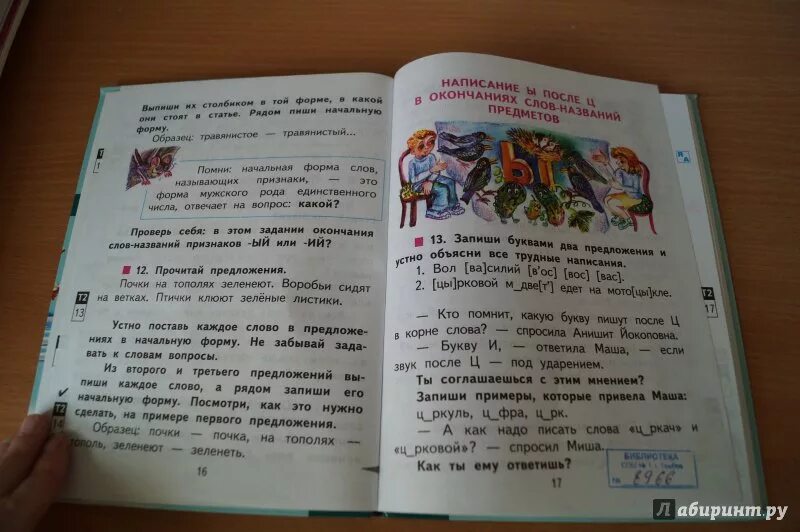 Выпиши их столбиком в той форме, в какой
они стоят в статье. Рядом пиши начальную
форму.
Образец: травянистое — травянистый...
Помни: начальная форма слов,
называющих признаки, — это
форма мужского рода единственного
числа, отвечает на вопрос: какой?
Проверь себя: в этом задании окончания
слов-названий признаков -ЫЙ или -ИЙ?
12. Прочитай предложения.
Почки на тополях зеленеют. Воробьи сидят
на ветках. Птички клюют зелёные листики.
Т2
13
Устно поставь каждое слово в предложе-
ниях в начальную форму. Не забывай зада-
вать к словам вопросы.
Из второго и третьего предложений вы-
пиши каждое слово, а рядом запиши его
начальную форму. Посмотри, как это нужно
сделать, на примере первого предложения.
Т2
14
Образец: почки — почка, на тополях —
тополь, зеленеют — зеленеть.
16
НАПИСАНИЕ Ы ПОСЛЕ Ц
В ОКОНЧАНИЯХ СЛОВ-НАЗВАНИЙ
ПРЕДМЕТОВ
Ы
13. Запиши буквами два предложения и
устно объясни все трудные написания.
1. Вол [ва]силий [в'ос] [вос] [вас].
2. [цы]рковой м_две[т'] едет на мото[цы]кле.
Т2
17
— Кто помнит, какую букву пишут после Ц
в корне слова? — спросила Анишит Йокоповна.
— Букву И, — ответила Маша, — если
звук после Ц — под ударением.
Ты соглашаешься с этим мнением?
Запиши примеры, которые привела Маша:
ц_ркуль, ц_фра, ц_рк.
— А как надо писать слова «ц_ркач» и
«ц_рковой»? — спросил Миша.
Как ты ему ответишь?
17
БИБЛИОТЕКА
№ 8966
Лабиринт.ру